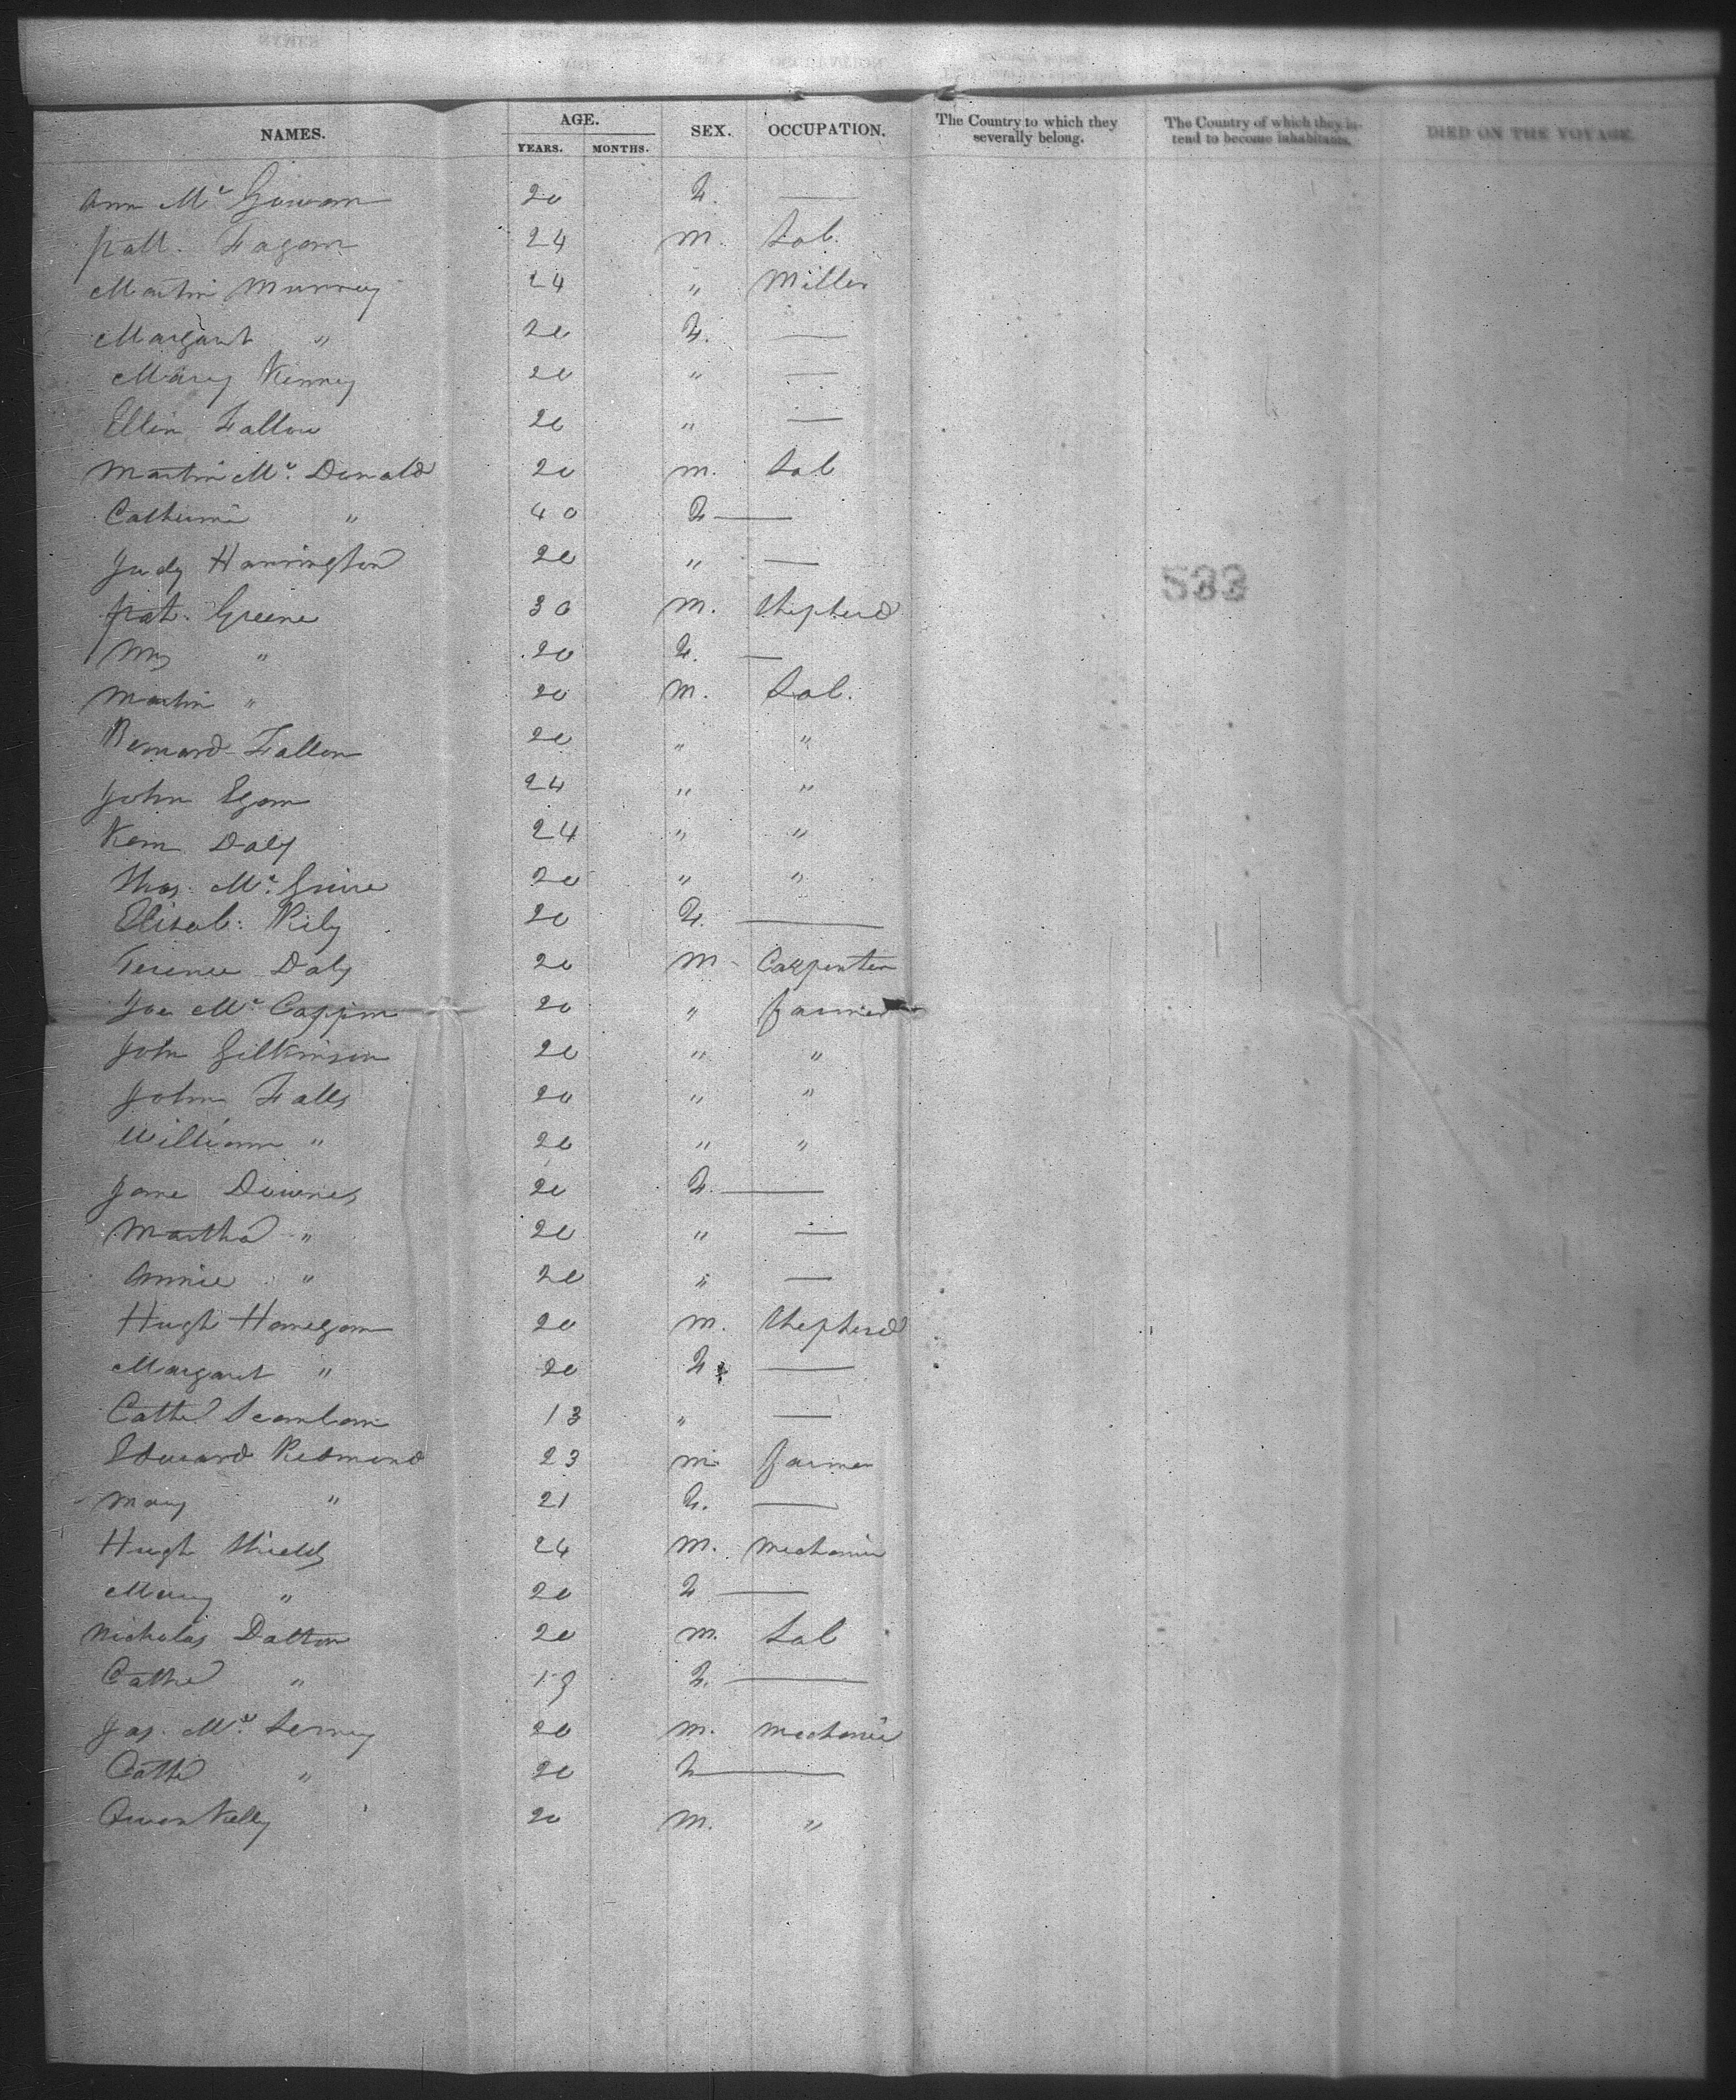 NAMES. AGE. SEX. OCCUPATION. The Country to which they severally belong. The Country of which they intend to become inhabitants. DIED ON THE VOYAGE.
YEARS. MONTHS.
Ann Mc Gowan 20 F. —
Patt. Fagan 24 m. Lab.
Martin Murrey 24 " Miller
Margaret " 20 F. —
Mary Kenney 20 " —
Ellen Fallon 20 " —
Martin Mc Donald 20 m. Lab
Catherine " 40 F —
Judy Harrington 20 " —
Pat. Greene 30 m. Shepherd
Mrs " 20 F. —
Martin " 20 m. Lab.
Bernard Fallon 20 " "
John Egan 24 " "
Daly 24 " "
Thos. Mc Guire 20 " "
Elizab: Rily 20 F. —
Terence Daly 20 m. Carpenter
Joe Mc 20 " farmer
John Gilkinson 20 " "
John Falls 20 " "
William " 20 " "
Jane Downes 20 F. —
Martha " 20 " —
Annie " 20 " —
Hugh Hanegan 20 m. Shepherd
Margaret " 20 F. —
Cathe Scanlan 13 " —
Edward Redmond 23 m farmer
Mary " 21 F. —
Hugh Shields 24 m. mechanic
Mary " 20 F —
Nicholas Dalton 20 m. Lab
Cathe " 19 F. —
Jas. Mc 20 m. mechanic
Cathe " 20 F —
Owen Kelly 20 m. "
533